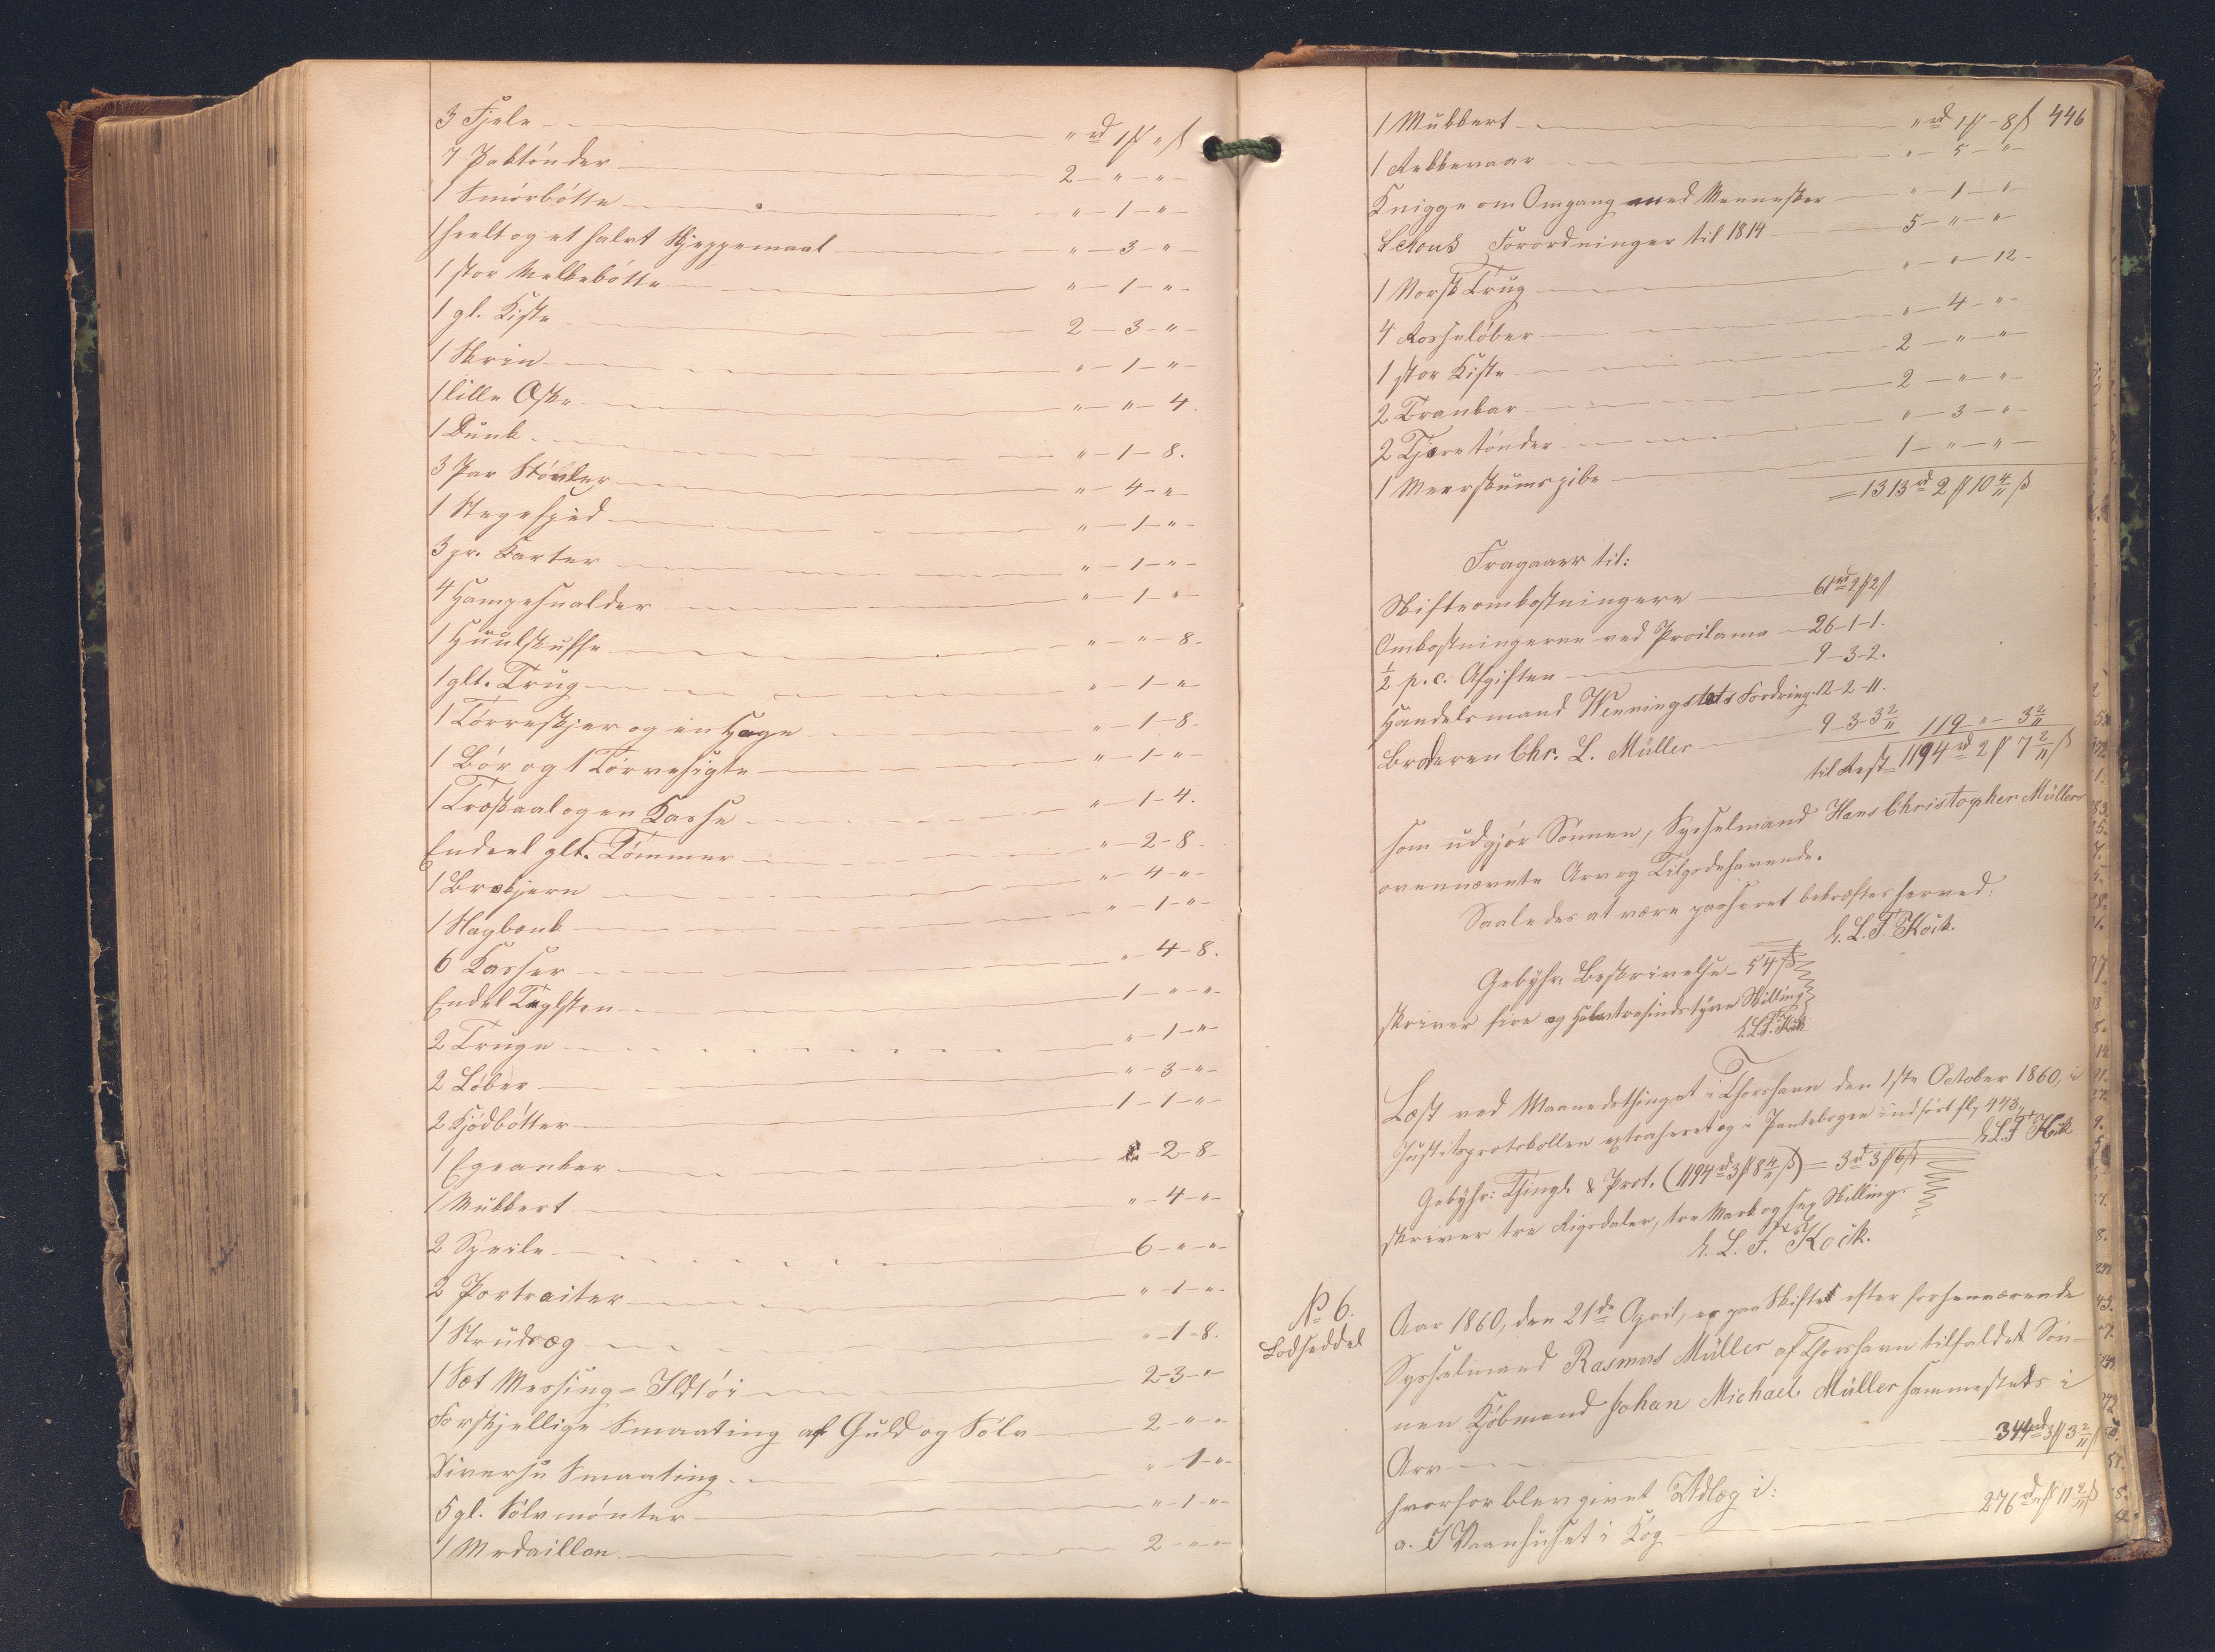 3 Fjele — " rd 1 ₥ " ß
7 Paktönder — 2 - " - " -
1 Smörbötte — " - 1 - " -
1 heelt og et halvt Skjeppemaal — " - 3 - " -
1 stor Melkebötte — " - 1 - " -
1 gl. Kiste — 2 - 3 - " -
1 Skrin — " - 1 - " -
1 lille Æske — " - " - 4.
1 Dunk — " - 1 - 8.
3 Par Stövler — " - 4 - " -
1 Stegespid — " - 1 - " -
3 pr. Karter — " - 1 - " -
4 Hampesnalder — " - 1 - " -
1 Huulskuffe — " - " - 8 -
1 glt. Trug — " - 1 - " -
1 Törveskjer og en Hage — " - 1 - 8.
1 Bör og 1 Törvesigte — " - 1 - " -
1 Træskaal og en Kasse — " - 1 - 4.
Endeel glt. Tömmer — " - 2 - 8.
1 Brækjern — " - 4 - " -
1 Slagbænk — " - 1 - " -
6 Kasser — " - 4 - 8.
Endel Teglsten — 1 - " - " -
2 Truge — " - 1 - " -
2 Löber — " - 3 - " -
2 Kjödbötter — 1 - 1 - " -
1 Egeanker — - 2 - 8 -
1 Mubbert — " - 4 - " -
2 Speile — 6 - " - " -
2 Portraiter — " - 1 - " -
1 Strudsæg — " - 1 - 8.
1 Sæt Messing-Ildtöi — 2 - 3 - " -
Forskjellige Smaating af Guld og Sölv — 2 - " - " -
Diverse Smaating — " - 1 - " -
5 gl. Sölvmönter — " - 1 - " -
1 Medaillon — 2 - " - " -
446
1 Mubbert — " rd 1 ₥ - 8 ß
1 Rekkevaar — " - 5 - " -
Knigge om Omgang med Mennesker — " - 1 - " -
Schous Forordninger til 1814 — 5 - " - " -
1 Norsk Trug — " - " - 12 -
4 Rosselöber — " - 4 - " -
1 stor Kiste — 2 - " - " -
2 Trankar — 2 - " - " -
2 Tjæretönder — " - 3 - " -
1 Meerskumspibe — 1 - " - " -
= 1313 rd 2 ₥ 10 4/11 ß
Fragaaer til:
Skifteomkostningerne — 61 rd 2 ₥ 2 ß
Omkostningerne ved Proklama — 26 - 1 - 1.
½ p.c. Afgiften — 9 - 3 - 2.
Handelsmand Wenningsteds Fordring. 12 - 2 - 11.
Broderen Chr. L. Müller — 9 - 3 - 3 2/11 119 " - 3 2/11
til Rest = 1194 rd 2 ₥ 7 2/11 ß
som udgjör Sönnen, Sysselmand Hans Christopher Müllers
ovennævnte Arv og Tilgodehavende.
Saaledes at være passeret bekræftes herved.
H. L. T. Kock.
Gebyhr: Beskrivelse - 54 ß
skriver fire og halvtresindstyve Skilling
H.L.T. Kock
Læst ved Maanedsthinget i Thorshavn den 1ste October 1860, i
Justitsprotokollen extraheret og i Pantebogen indfört fl, 473,
H.L.T Kock
Gebyhr: Thingl. & Prot. (1194 rd 3 ₥ 8 4/11 ß) = 3 rd 3 ₥ 6 ß
skriver tre Rigsdaler, tre Mark og sex Skilling.
H. L. T. Kock.
No 6.
Lodseddel
Aar 1860, den 21de April, er paa Skiftet efter forhenværende
Sysselmand Rasmus Müller af Thorshavn tilfaldet Sön-
nen Kjöbmand Johan Michael Müller sammesteds i
Arv — 344 rd 3 ₥ 3 2/11 ß
hvorfor blev givet Udlæg i:
a. I Vaanhuset i Kog — 276 rd " ₥ 11 2/11 ß